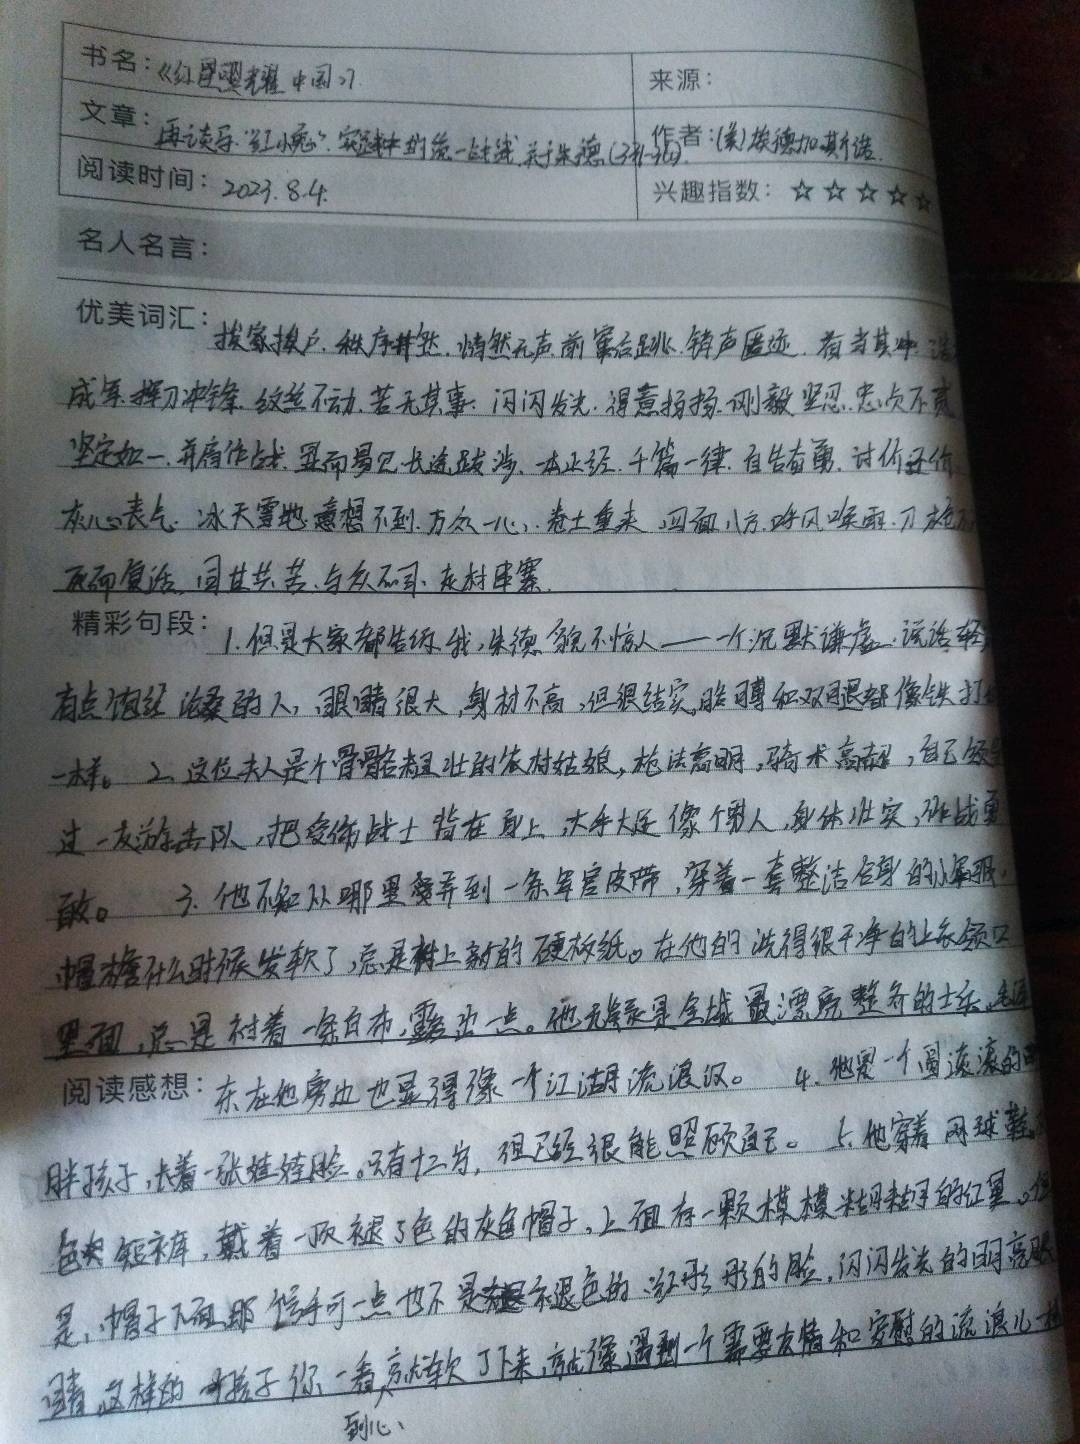 书名：《红星照耀中国》
来源：
文章：再谈马. "红小鬼". 实践中的统一战线. 关于朱德
作者：(美)埃德加·斯诺.
阅读时间：2023.8.4.
兴趣指数：☆☆☆☆☆
名人名言：
优美词汇：挨家挨户. 秩序井然. 悄然无声. 前窜后跳. 销声匿迹. 首当其冲.
成军. 挥刀冲锋. 纹丝不动. 若无其事. 闪闪发光. 得意扬扬. 刚毅坚忍. 忠贞不贰
坚定如一. 并肩作战. 显而易见. 长途跋涉. 一本正经. 千篇一律. 自告奋勇. 讨价还价
灰心丧气. 冰天雪地. 意想不到. 万众一心. 卷土重来. 四面八方. 呼风唤雨. 刀枪不
死而复活. 同甘共苦. 与众不同. 农村串寨.
精彩句段：1. 但是大家都告诉我，朱德貌不惊人——一个沉默谦虚、说话轻
有点饱经沧桑的人，眼睛很大，身材不高，但很结实，胳膊和双腿都像铁打的
一样。 2. 这位夫人是个骨骼粗壮的农村姑娘，枪法高明，骑术高超，自己领导
过一支游击队，把受伤战士背在身上，大手大足像个男人，身体壮实，作战勇
敢。 3. 他不知从哪里弄到一条军官皮带，穿着一套整洁合身的小军服，
帽檐什么时候发软了，总是衬上新的硬板纸。在他的洗得很干净的上衣领口
里面，总是衬着一条白布，露出一点。他无疑是全城最漂亮整齐的士兵，毛泽
阅读感想：东在他旁边也显得像一个江湖流浪汉。 4. 他是一个圆滚滚的
胖孩子，长着一张娃娃脸。只有十二岁，但已经很能照顾自己。 5. 他穿着网球鞋、
色短裤，戴着一顶褪了色的灰色帽子，上面有一颗模模糊糊的红星。但
是，帽子下面那个号手可一点也不是褪色的：红彤彤的脸，闪闪发光的明亮眼
睛，这样的孩子你一看到心就软了下来，就像遇到一个需要友情和安慰的流浪儿一样